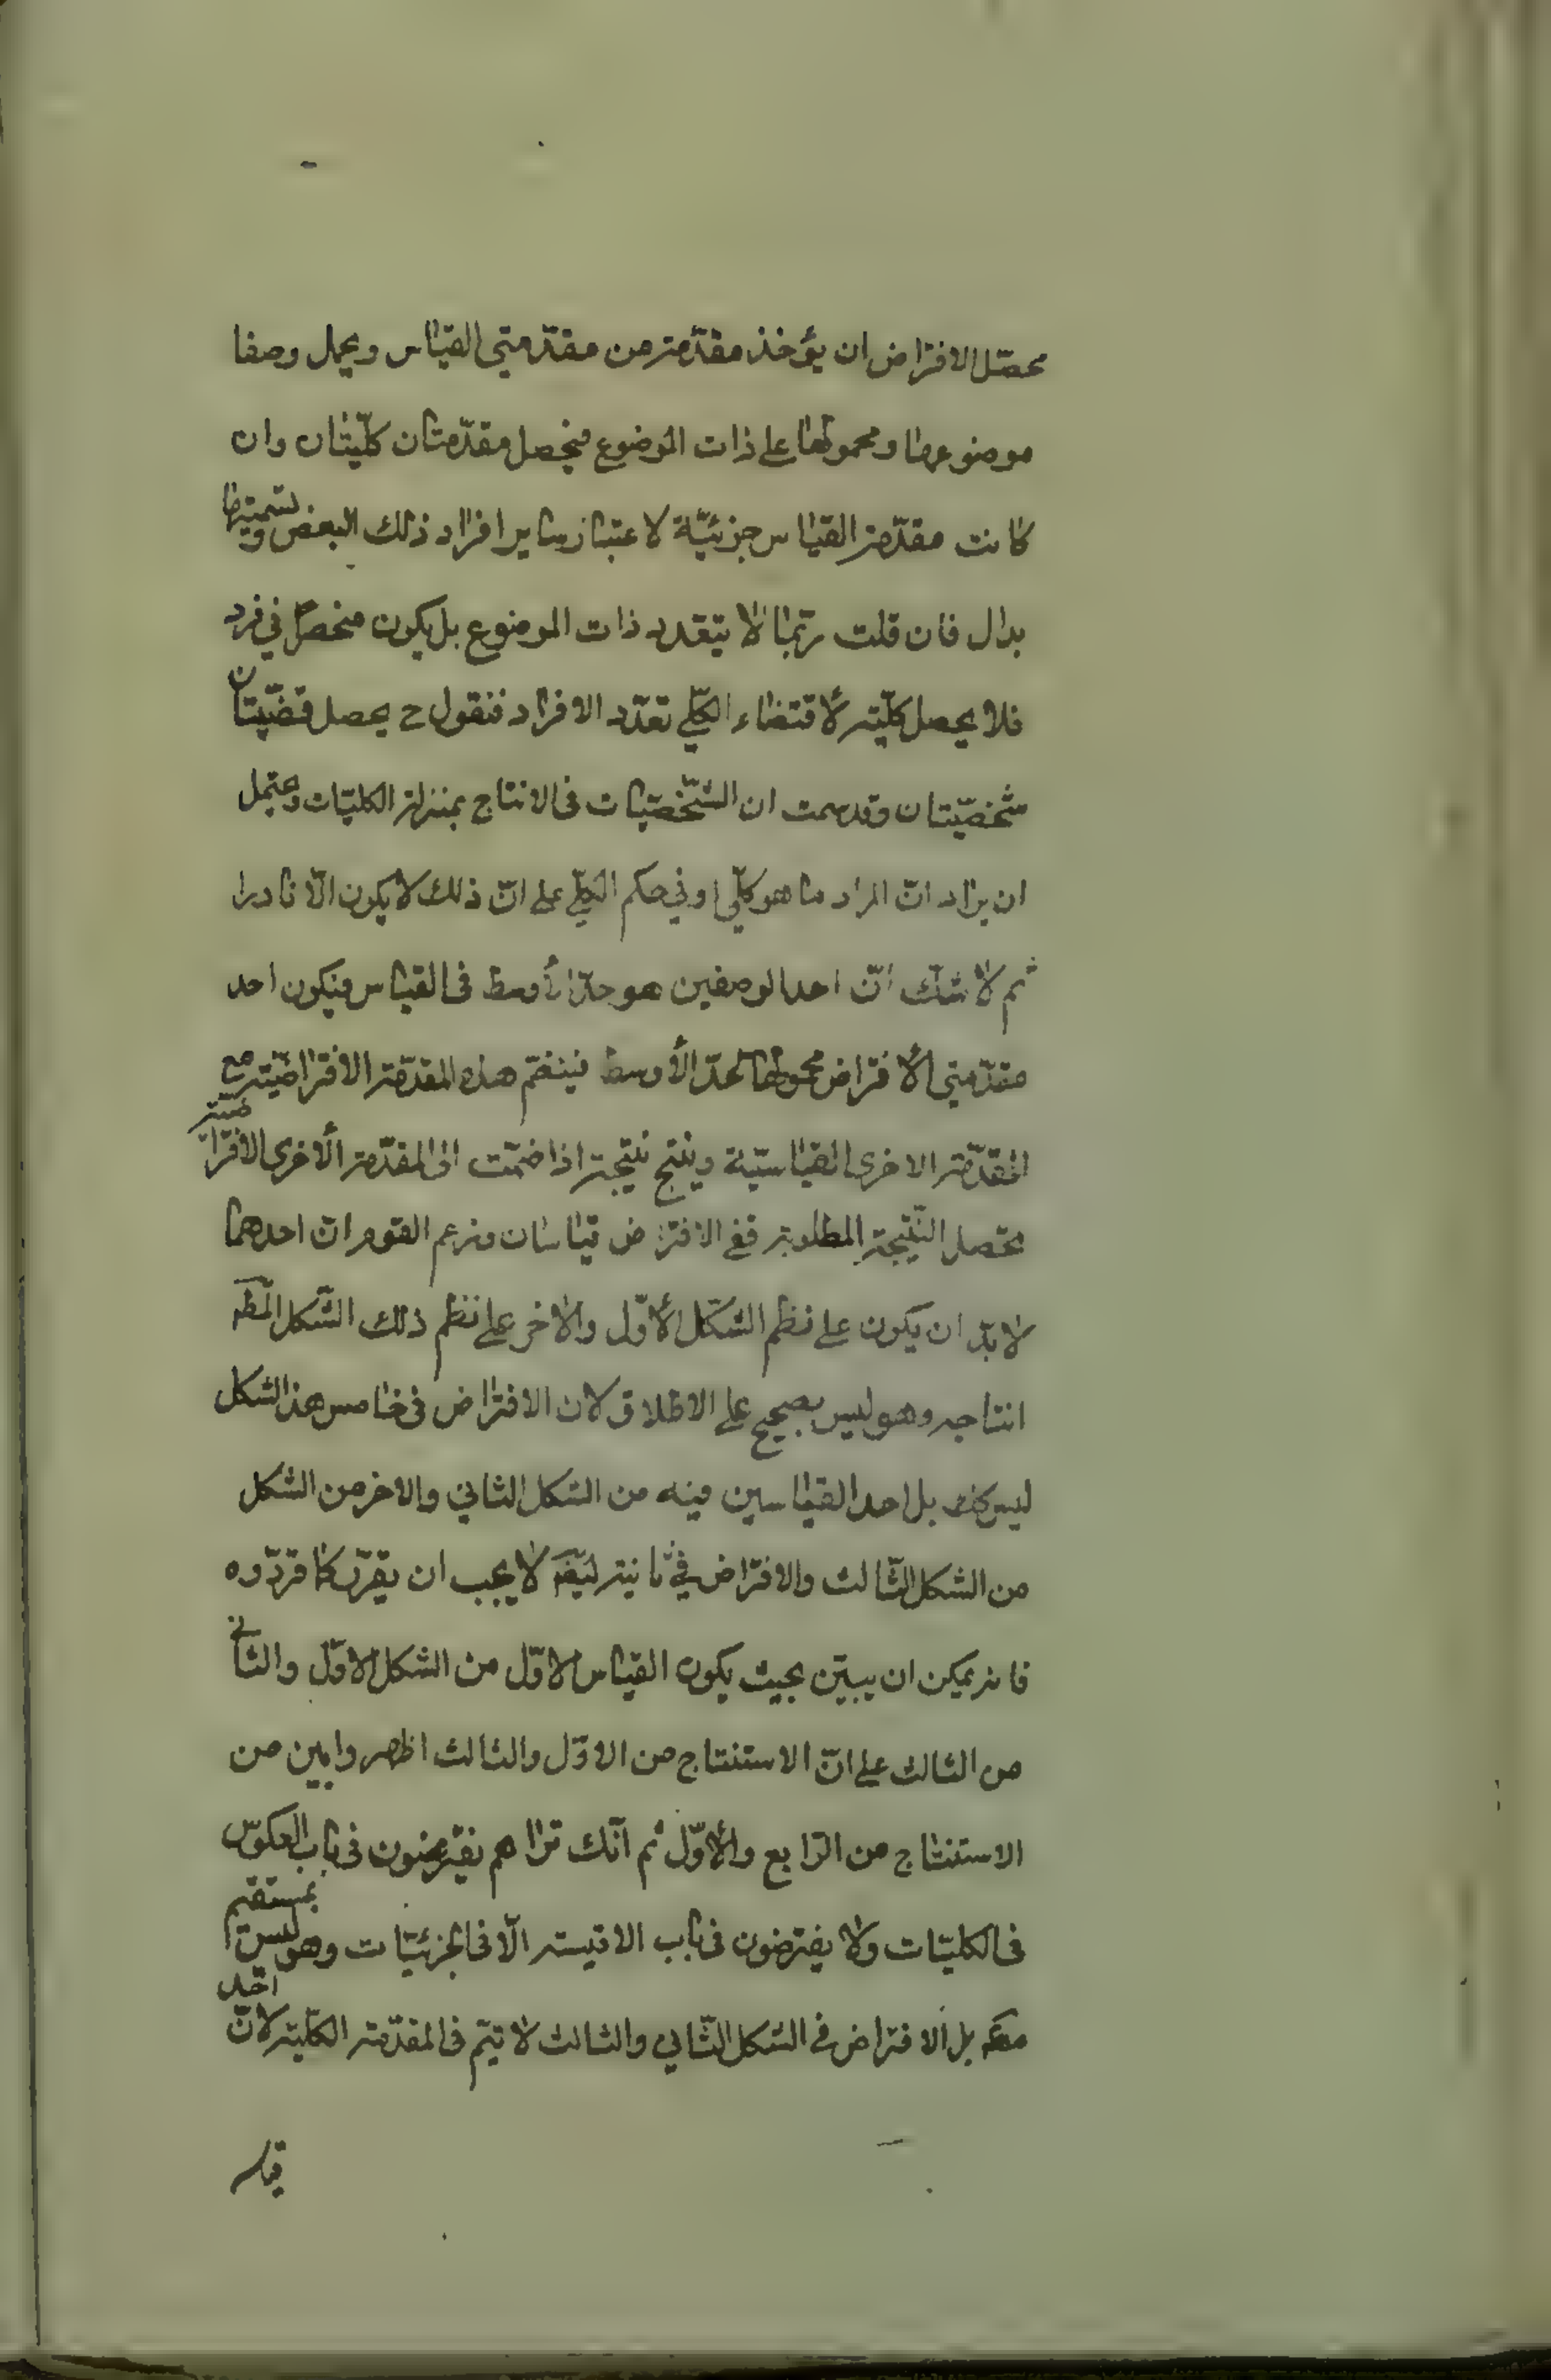 محصّل الافتراض ان يؤخذ مقدّمة من مقدّمتي القياس ويحمل وصفا
موضوعها ومحمولها على ذات الموضوع فيحصل مقدّمتان كلّيتان وان
كانت مقدّمة القياس جزئيّة لاعتبار ساير افراد ذلك البعض وتسميتها
بدال فان قلت ربّما لا يتعدد ذات الموضوع بل يكون منحصرًا في فرد
فلا يحصل كلّية لاقتضاء الكلّي تعدّد الافراد فنقول ح يحصل قضيّتان
شخصيّتان وقد سمعت ان الشّخصيّات فى الانتاج بمنزلة الكليّات ويحتمل
ان يراد انّ المراد ما هو كلّي او في حكم الكلّي على انّ ذلك لا يكون الّا نادرا
ثم لا شكّ انّ احد الوصفين هو حدّ أوسط فى القياس فيكون احد
مقدّمتي الأفتراض محمولها الحدّ الأوسط فينضمّ هذه المقدّمة الافتراضيّة مع
المقدّمة الاخرى القياسيّة وينتج نتيجة اذا ضمّت الى المقدّمة الأخرى الافتراضيّة
يحصل النّتيجة المطلوبة ففى الافتراض قياسان وزعم القوم انّ احدهما
لا بدّ ان يكون على نظم الشكل الأوّل والاخر على نظم ذلك الشّكل المط
انتاجه وهو ليس بصحيح على الاطلاق لان الافتراض فى خامس هذا الشكل
ليس كك بل احد القياسين فيه من الشكل الثاني والاخر من الشكل
من الشكل الثّالث والافتراض في ثانية لا يجب ان يقرّر كما قرّروه
فانه يمكن ان يبيّن بحيث يكون القياس الاوّل من الشكل الاوّل والثانى
من الثالث على انّ الاستنتاج من الاوّل والثالث اظهر وابين من
الاستنتاج من الرّابع والأوّل ثم انّك تراهم يفترضون فى باب العكوس
فى الكليّات ولا يفترضون فى باب الاقيسة الّا فى الجزئيّات وهو ليس بمستقيم
مط بل الافتراض في الشكل الثّاني والثالث لا يتمّ فى المقدّمة الكلّية لانّ احد
قيا